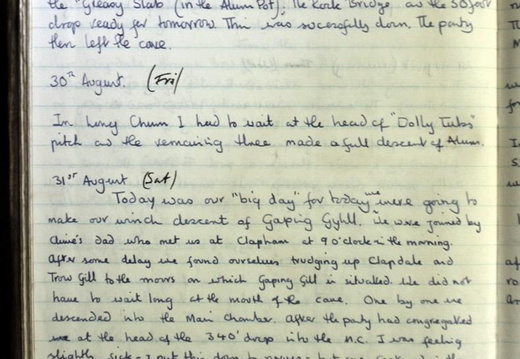 the "Greasy Slab (in the Alum Pot), The Rock Bridge, and the 50 foot
drop ready for tomorrow. This was sucessfully down. The party
then left the cave.
30th August. (Fri)
In Long Churn I had to wait at the head of "Dolly Tubs"
pitch and the remaining three made a full descent of Alum.
31st August (Sat)
Today was our "big day" for today we were going to
make our winch descent of Gaping Gyhll. We were joined by
dad who met us at Clapham at 9 o'clock in the morning.
After some delay we found ourselves trudging up Clapdale and
Trow Gill to the moors on which Gaping Gill is situated. We did not
have to wait long at the mouth of the cave. One by one we
descended into the Main Chamber. After the party had congregated
at the head of the 340' drop into the M.C. I was feeling
slightly sick - I put this down to